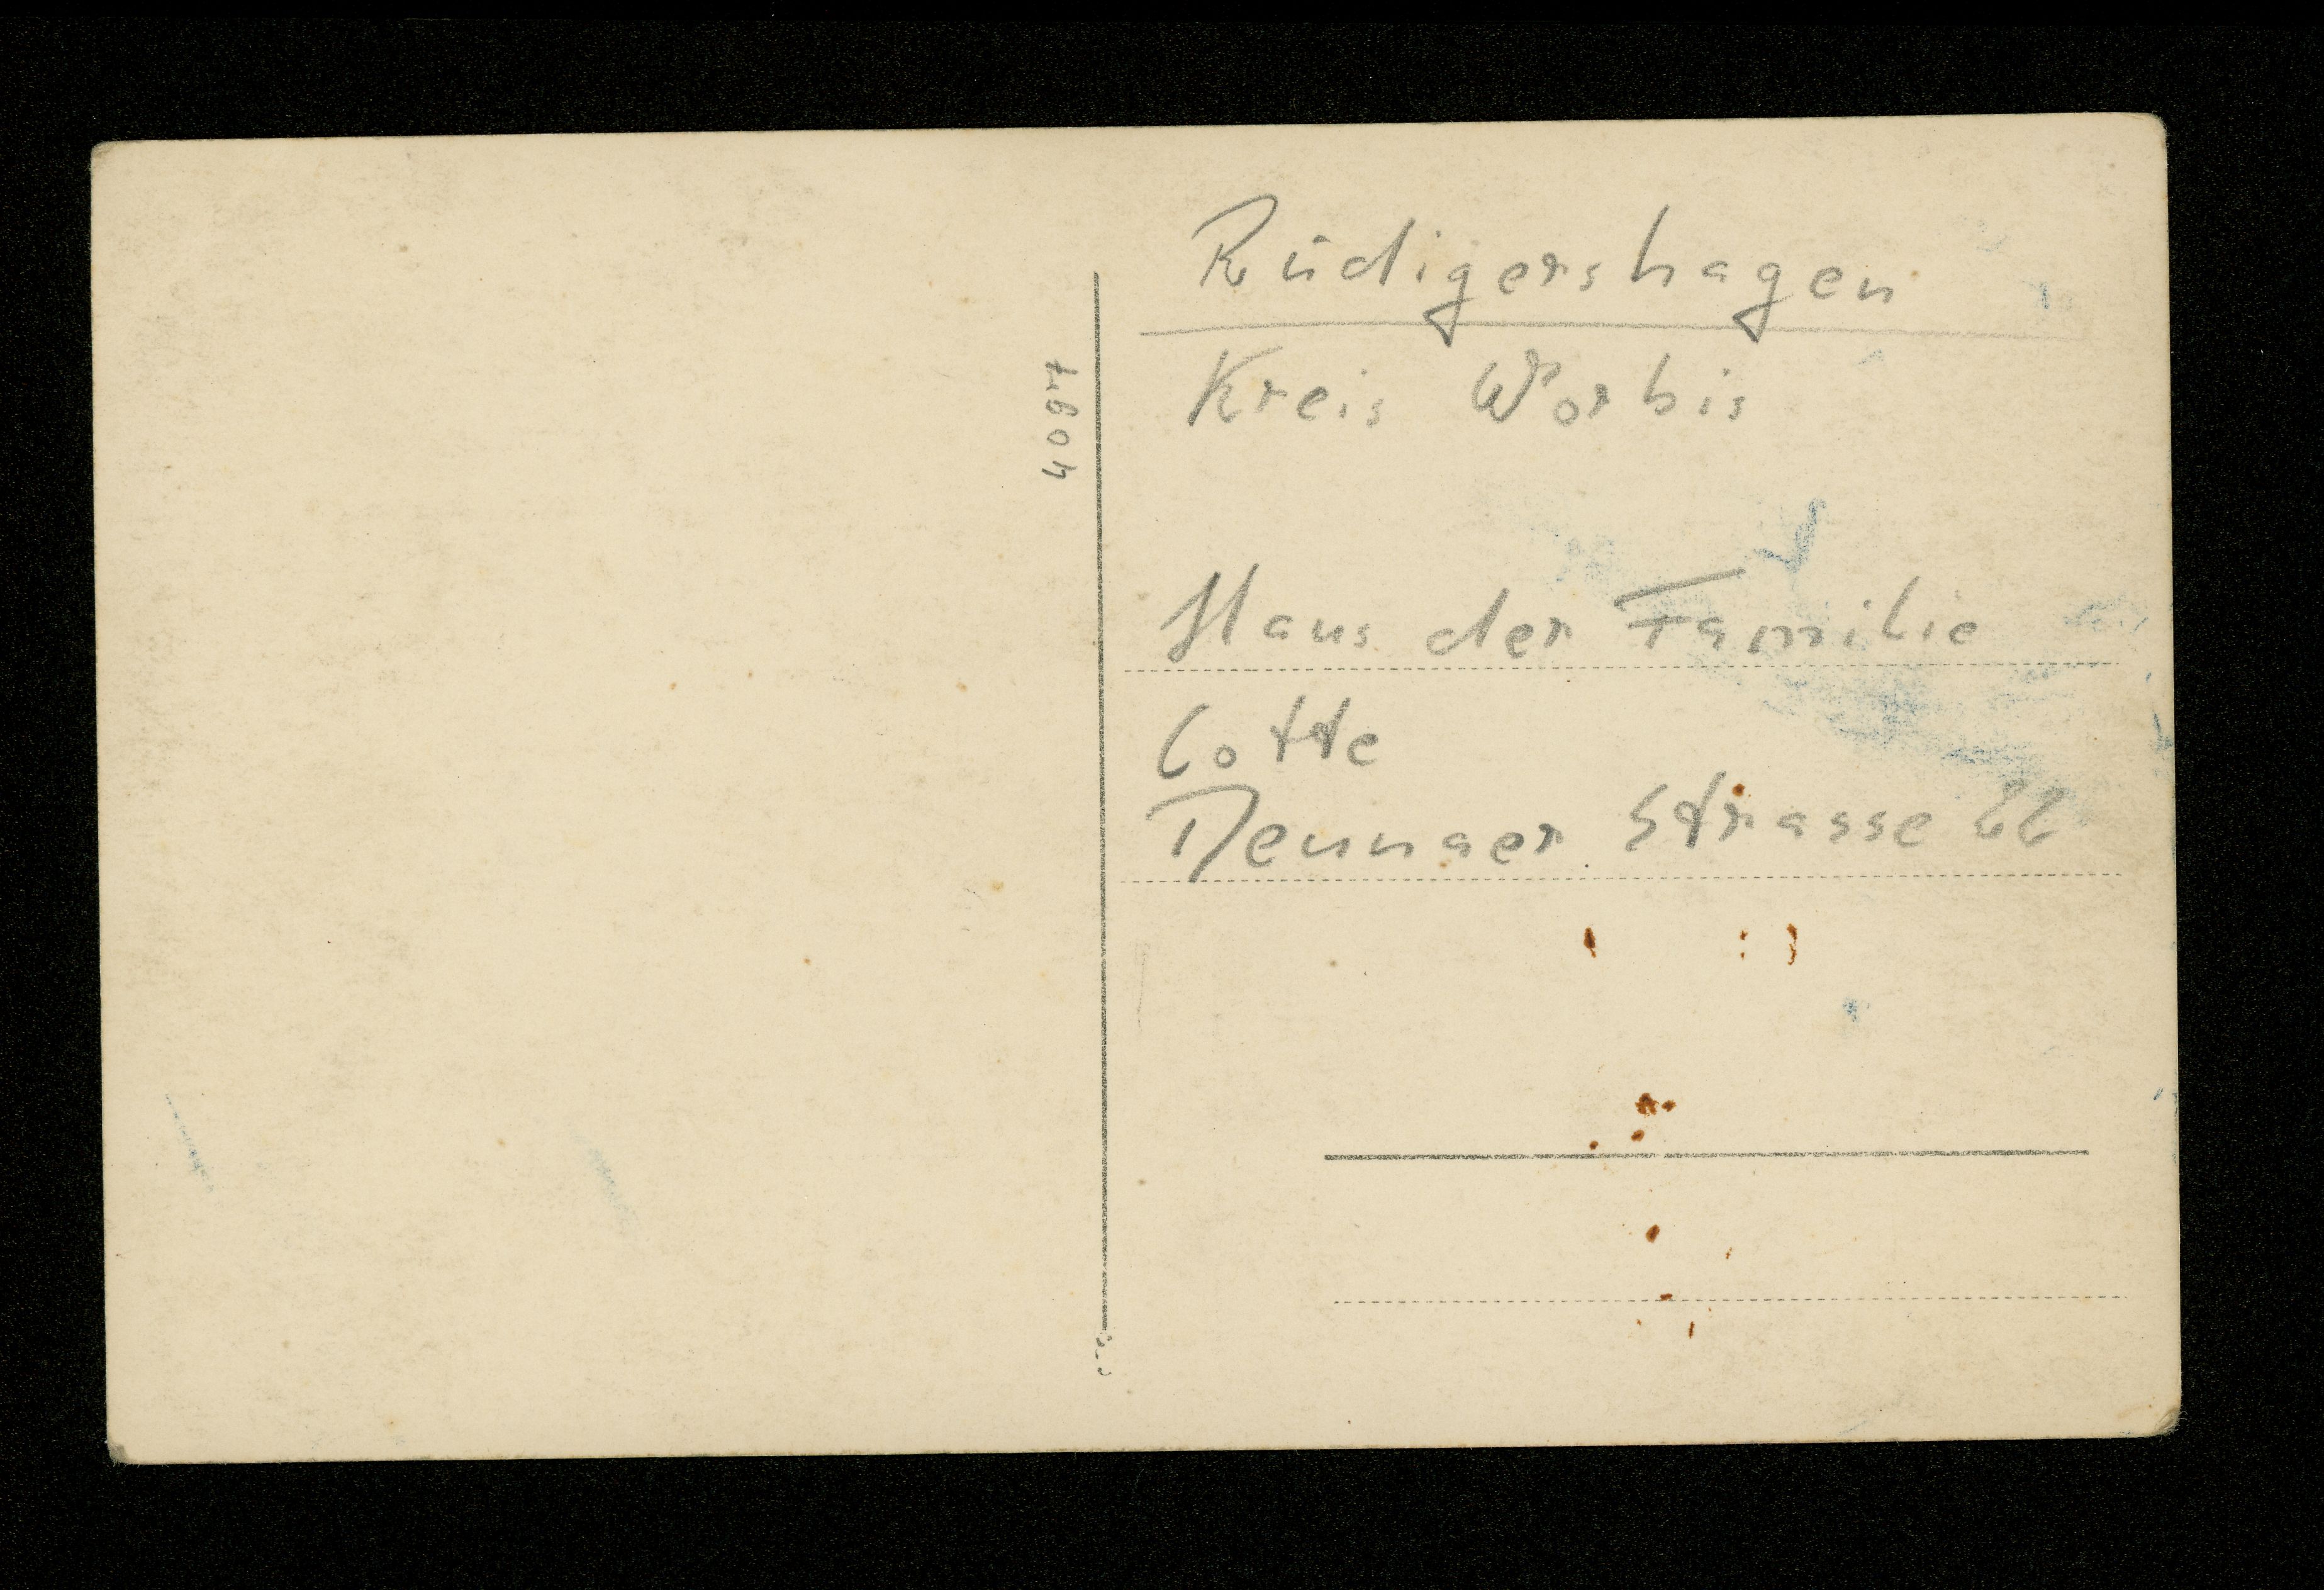 4097
Rüdigershagen
Kreis Worbis
Haus der Familie
Cotte
Deunaer Strasse 22